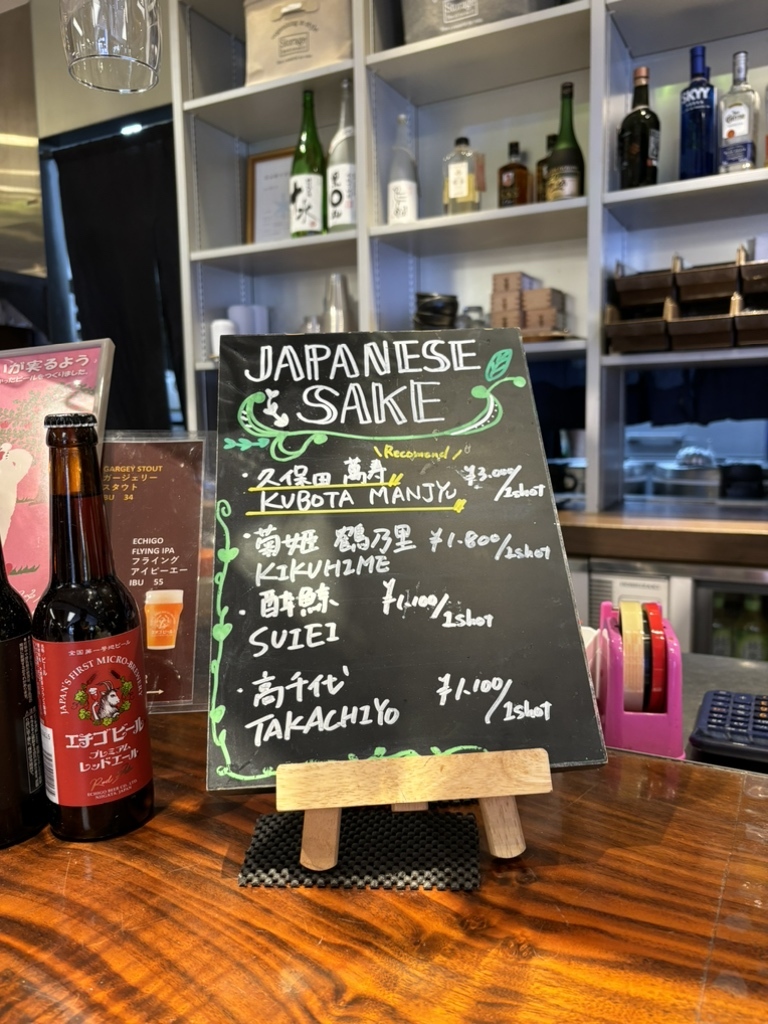 JAPANESE
SAKE
Recomend
・久保田 萬寿 ¥3.000/1shot
KUBOTA MANJYU
・菊姫 鶴乃里 ¥1.800/1shot
KIKUHIME
・酔鯨 ¥1,100/1shot
SUIEI
・高千代 ¥1.100/1shot
TAKACHIYO
が実るよう
GARGEY STOUT
ガージェリー
スタウト
IBU 34
ECHIGO
FLYING IPA
フライング
アイピーエー
IBU 55
全国第一号地ビール
JAPAN'S FIRST MICRO-BREWERY
エチゴビール
プレミアム
レッドエール
Red
SKYY
Storage